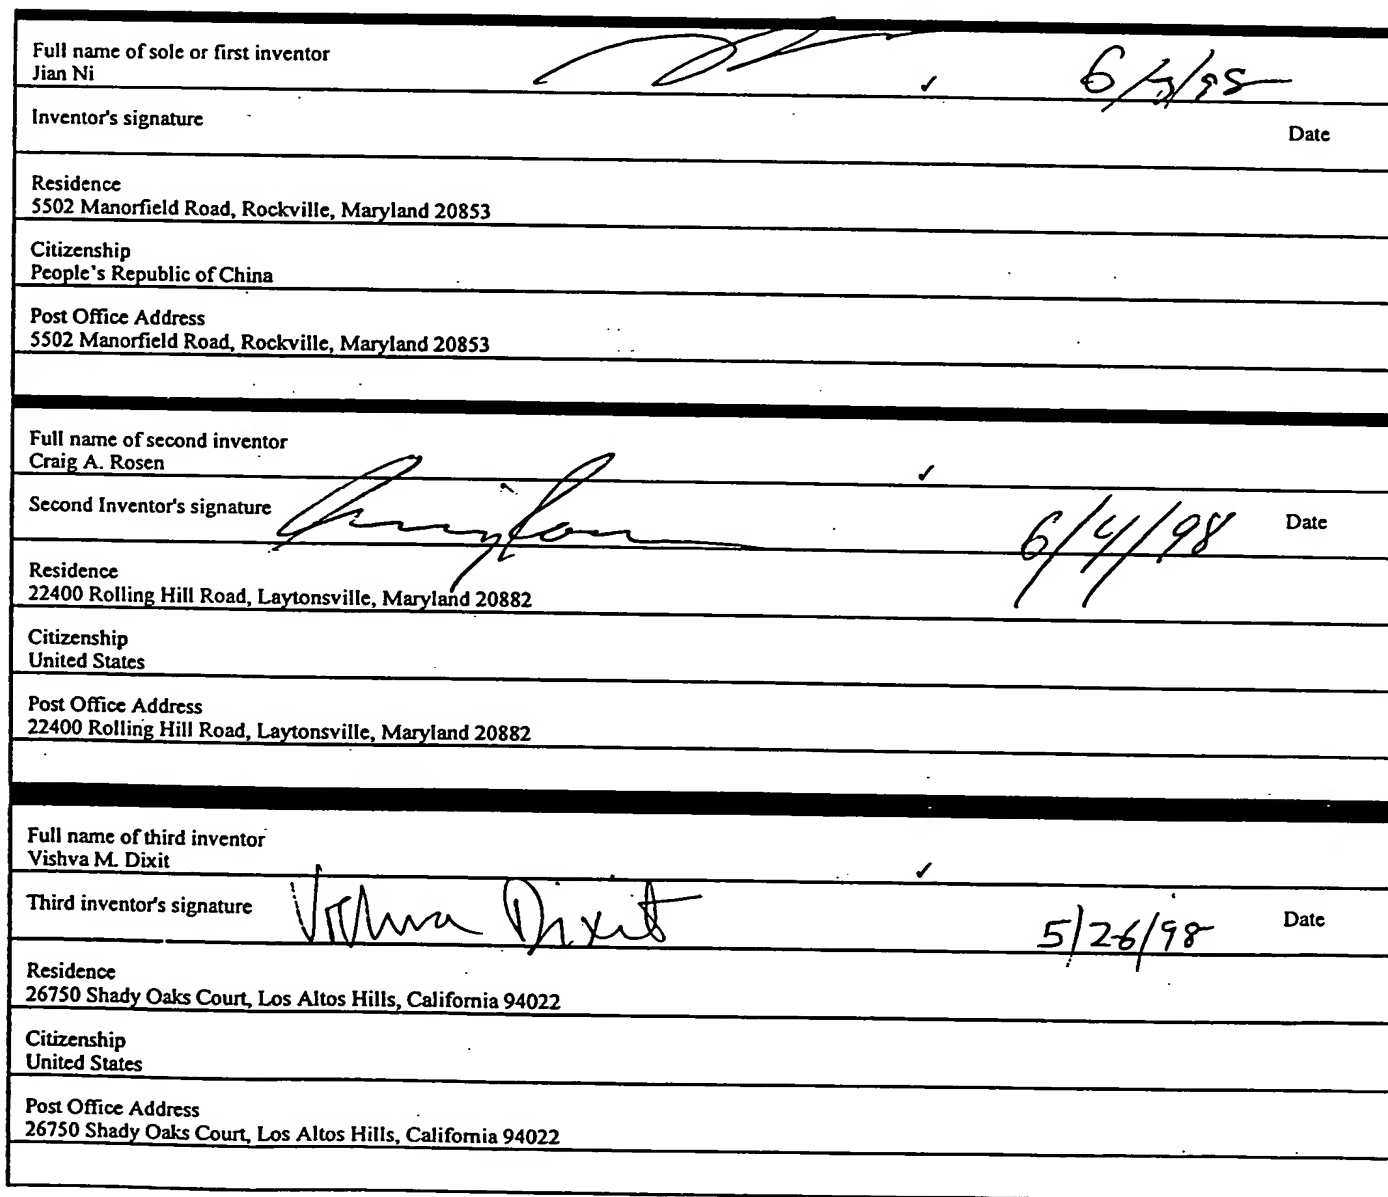 Full name of sole or first inventor
Jian Ni
6/3/98
Inventor's signature
Date
Residence
5502 Manorfield Road, Rockville, Maryland 20853
Citizenship
People's Republic of China
Post Office Address
5502 Manorfield Road, Rockville, Maryland 20853
Full name of second inventor
Craig A. Rosen
Second Inventor's signature
6/4/98 Date
Residence
22400 Rolling Hill Road, Laytonsville, Maryland 20882
Citizenship
United States
Post Office Address
22400 Rolling Hill Road, Laytonsville, Maryland 20882
Full name of third inventor
Vishva M. Dixit
Third inventor's signature Vishva Dixit 5/26/98 Date
Residence
26750 Shady Oaks Court, Los Altos Hills, California 94022
Citizenship
United States
Post Office Address
26750 Shady Oaks Court, Los Altos Hills, California 94022